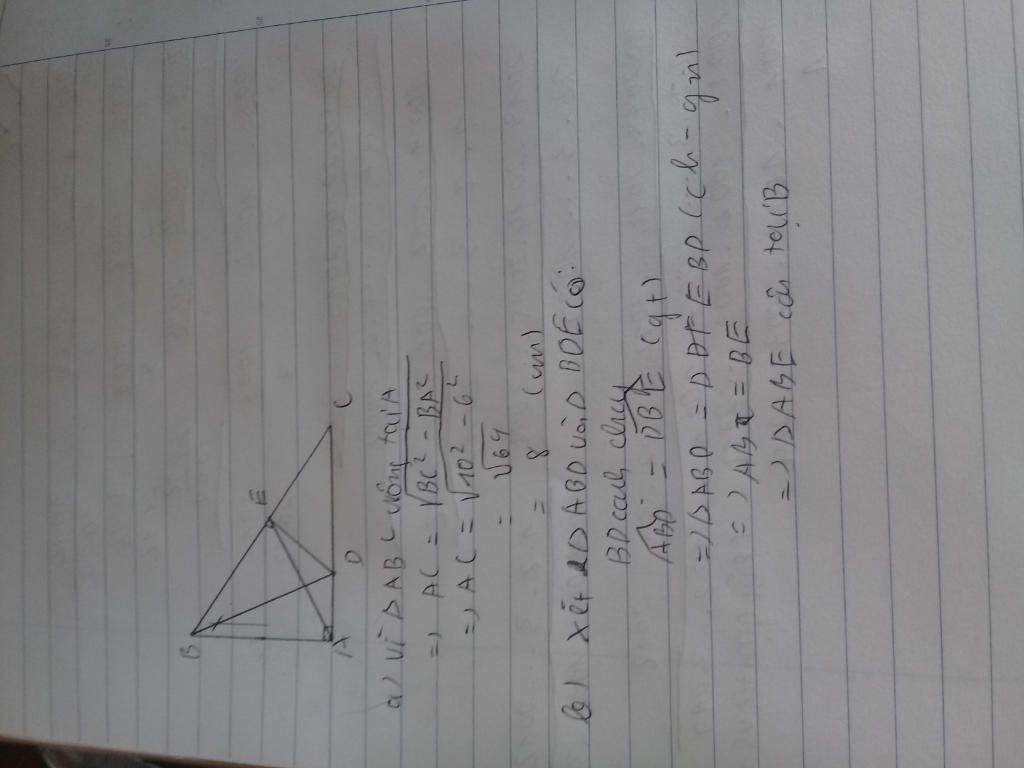 B
E
A
D
C
a) Vì Δ ABC vuông tại A
=) AC = √BC² - BA²
=) AC = √10² - 6²
= √64
= 8 (cm)
b) Xét 2Δ ABD và Δ BDE có:
BD cạnh chung
ABD = DBE (gt)
=) Δ ABD = Δ EBD (ch - gn)
=) AB = BE
=) Δ ABE cân tại B